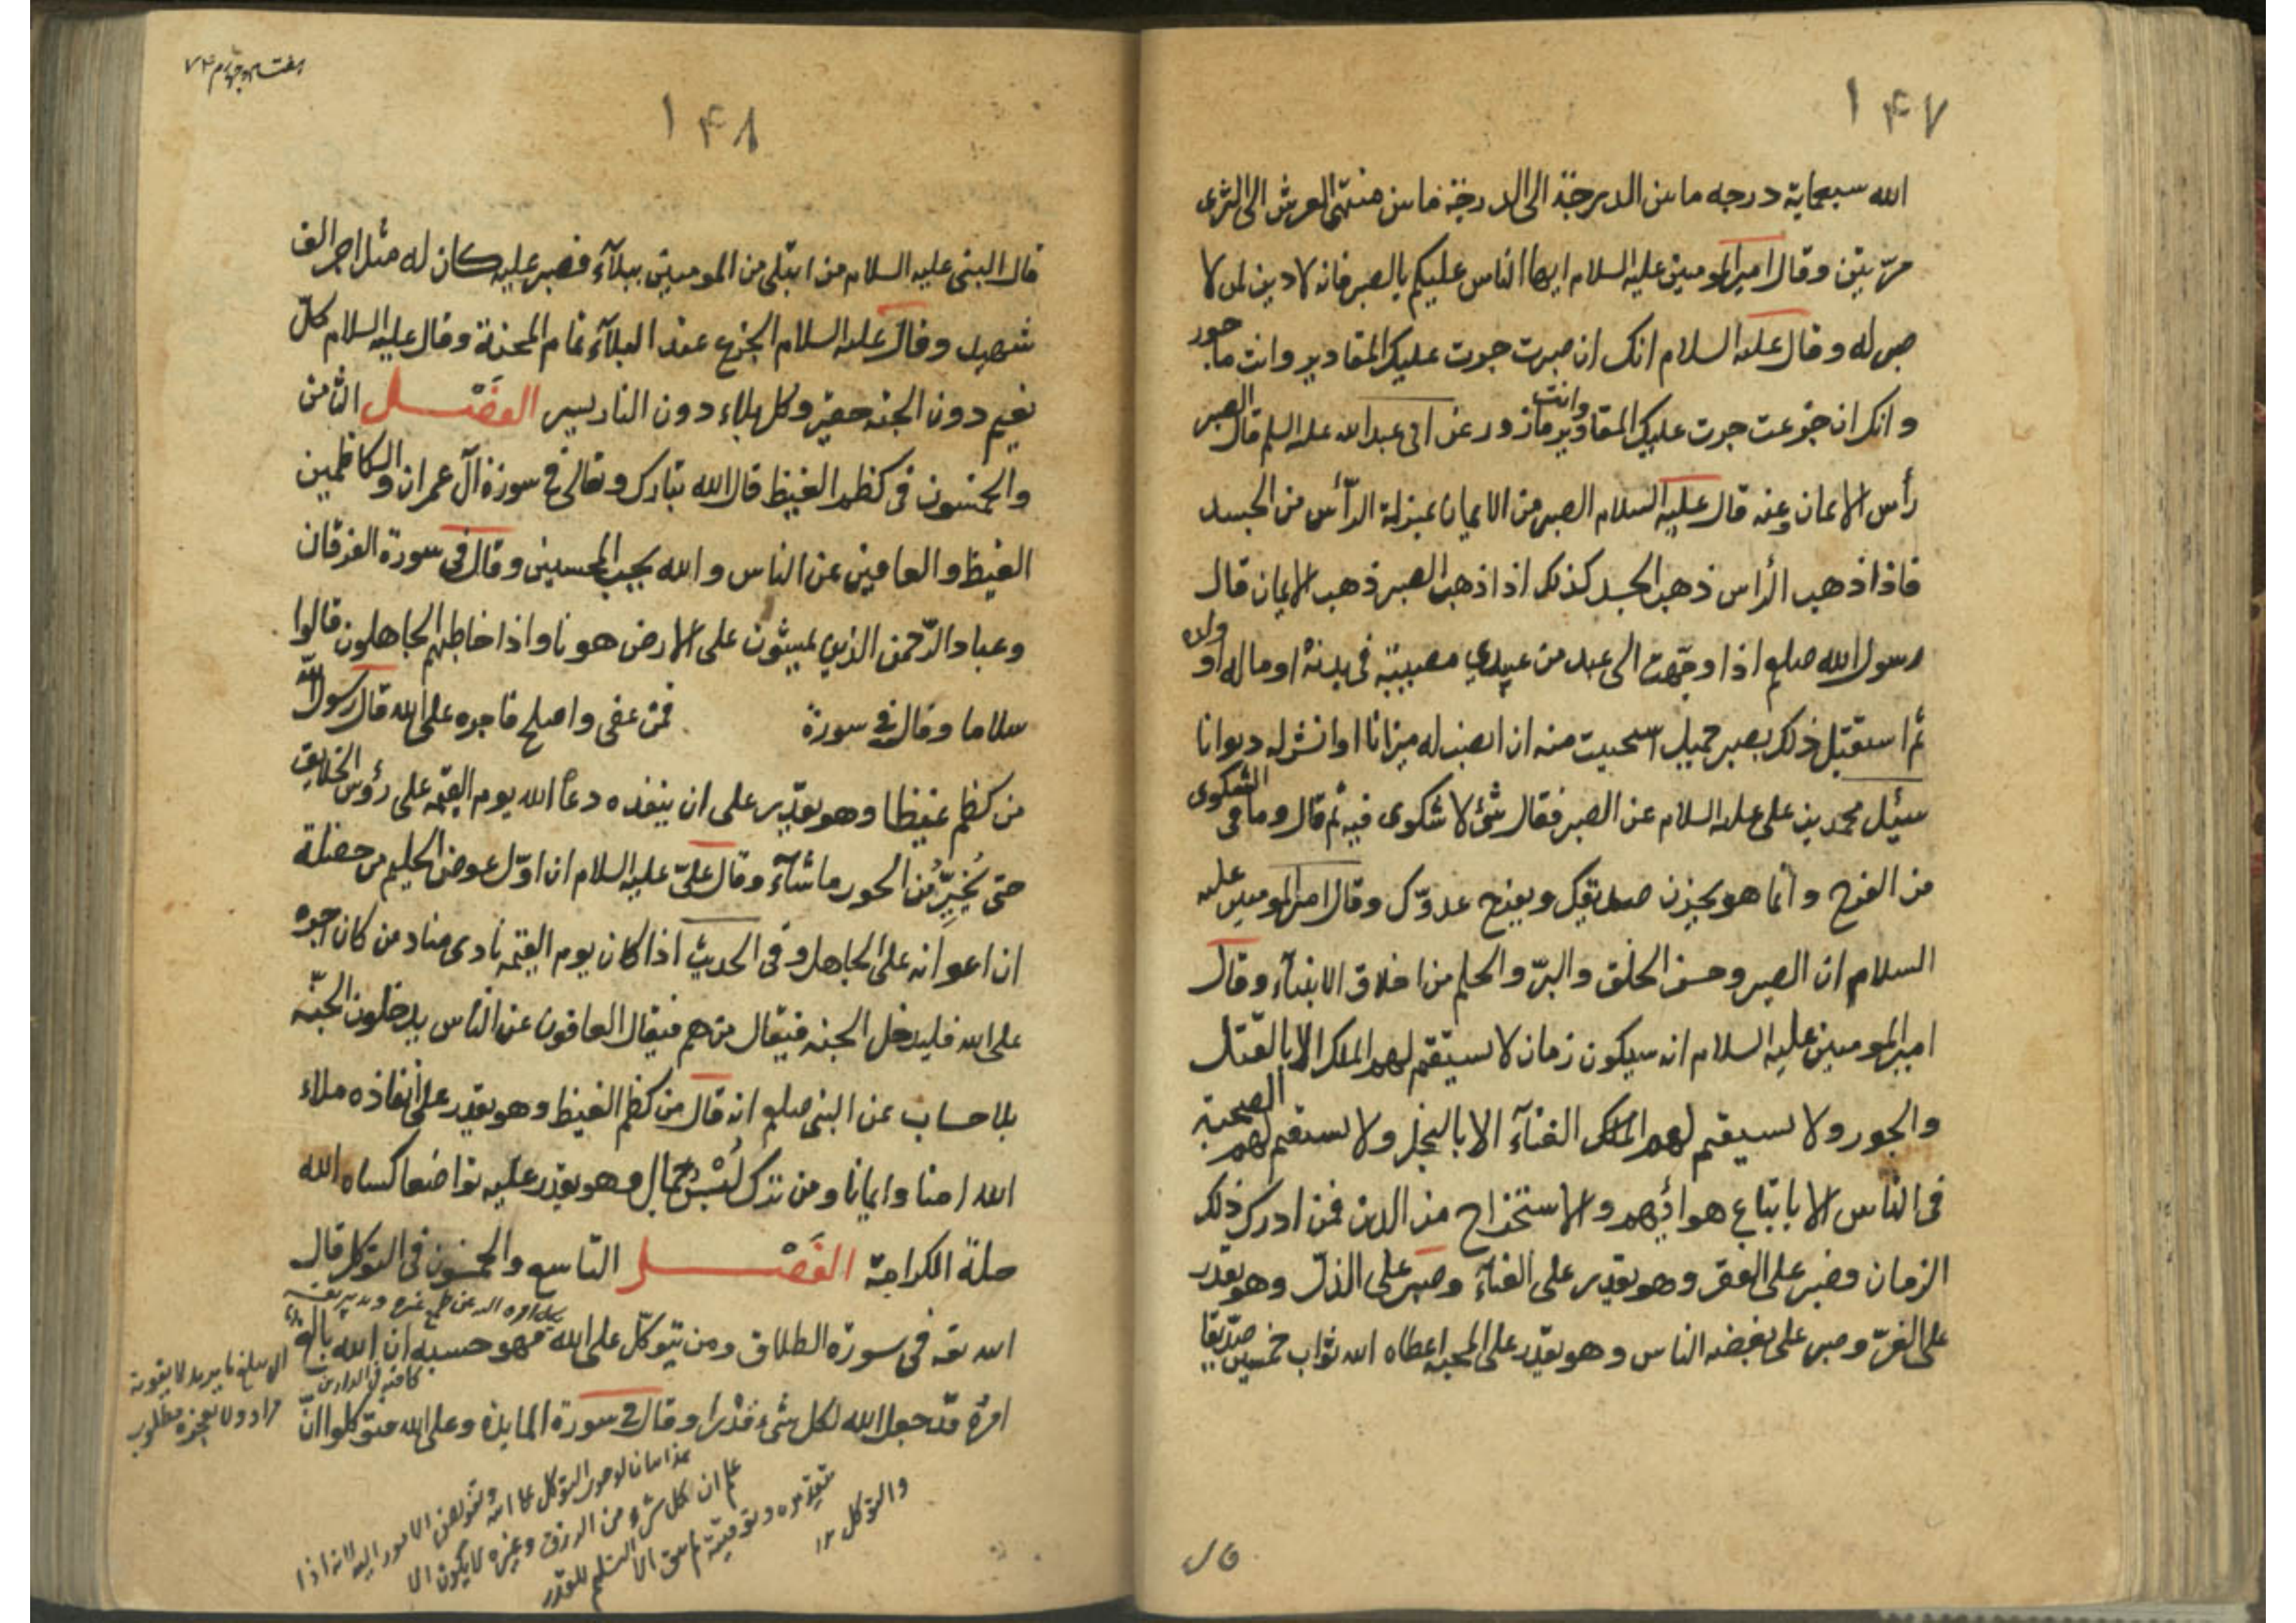 ۱۴۷
الله سبعماية درجه ما بين الدرجة الى الدرجة فما بين منتهى العرش الى الثرى
مرتين وقال امير المومنين عليه السلام ايها الناس عليكم بالصبر فانه لا دين لمن لا
صبر له وقال عليه السلام انك ان صبرت جرت عليك المقادير وانت ماجور
وانك ان جزعت جرت عليك المقادير وانت مازور عن ابى عبد الله عليه السلم قال الصبر
رأس الايمان وعنه قال عليه السلام الصبر من الايمان بمنزلة الرّأس من الجسد
فاذا ذهب الرّاس ذهب الجسد كذلك اذا ذهب الصبر ذهب الايمان قال
رسول الله صلعم اذا وجّهت الى عبد من عبيدي مصيبة فى بدنه او ماله او ولده
ثم استقبل ذلك بصبر جميل استحييت منه ان انصب له ميزانا او انشر له ديوانا
سئل محمد بن على عليه السلام عن الصبر فقال شئ لا شكوى فيه ثم قال وما فى الشكوى
من الفرح وانما هو يحزن صديقك ويفرح عدوّك وقال امير المومنين عليه
السلام ان الصبر وحسن الخلق والبرّ والحلم من اخلاق الانبياء وقال
امير المومنين عليه السلام انه سيكون زمان لا يستقيم لهم الملك الا بالقتل
والجور ولا يستقيم لهم الملك الغنآء الا بالبخل ولا يستقيم لهم الصحبة
فى الناس الا باتباع هوائهم والاستخراج من الدين فمن ادرك ذلك
الزمان وصبر على الفقر وهو يقدر على الغنآء وصبر على الذل وهو يقدر
على العزّ وصبر على بغضه الناس وهو يقدر على المحبه اعطاه الله ثواب خمسين صدّيقا
هفتاد وچهارم ۷۴
۱۴۸
قال النبى عليه السلام من ابتلى من المومنين ببلآء فصبر عليه كان له مثل اجر الف
شهيد وقال عليه السلام الجزع عند البلآء تمام المحنة وقال عليه السلام كلّ
نعيم دون الجنه حقير وكل بلاء دون النار يسير الفَصْل الثامن
والخمسون فى كظم الغيظ قال الله تبارك وتعالى فى سورة آل عمران والكاظمين
الغيظ والعافين عن الناس والله يحب المحسنين وقال فى سورة الفرقان
وعباد الرّحمن الذين يمشون على الارض هونا واذا خاطبهم الجاهلون قالوا
سلاما وقال فى سورة فمن عفى واصلح فاجره على الله قال رسول الله
من كظم غيظا وهو يقدر على ان ينفذه دعاً الله يوم القيمه على رؤس الخلايق
حتى يُخيِّر من الحور ما شآء وقال علىّ عليه السلام ان اوّل عوض الحليم من خصلة
ان اعوانه على الجاهل وفى الحديث اذا كان يوم القيمه نادى مناد من كان اجره
على الله فليدخل الجنه فيقال من هم فيقال العافون عن الناس يدخلون الجنّه
بلا حساب عن النبى صلعم انه قال من كظم الغيظ وهو يقدر على انفاذه ملاء
الله امنا وايمانا ومن ترك لُبْس جمال وهو يقدر عليه تواضعا كساه الله
حلة الكرامة الفَصْل التاسع والخمسون فى التوكل قال
الله تعه فى سورة الطلاق ومن يتوكّل على الله فهو حسبه ان الله بالغ
كافيه فى الدارين
امرُه قد جعل الله لكل شىء قدْرا وقال فى سورة المايدة وعلى الله فتوكلوا ان
اى يبلغ ما يريد لا يفوته
مراد ولا يعجزه مطلوب
التوكل على الله وتفويض الامور اليه لانه اذا
علم ان كل شىء من الرزق وغيره لا يكون الا
بتقديره وتوقيته لم يبق الا التسليم للقدر
والتوكل ۱۲